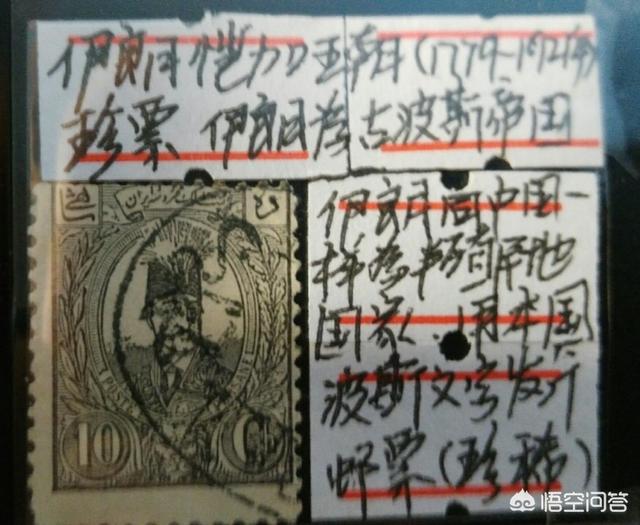 伊朗恺加王朝(1779-1924年)
珍票 伊朗为古波斯帝国
伊朗同中国一
样为半殖民地
国家.用本国
波斯文字发行
邮票(珍稀)
10 Ch
悟空问答